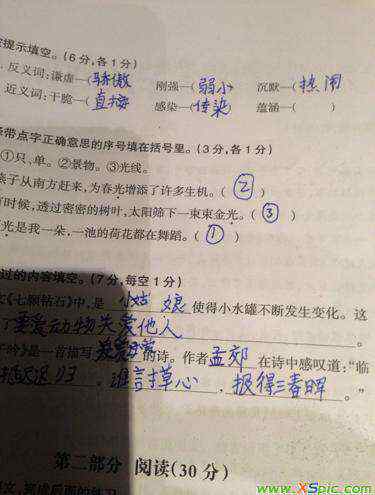 提示填空。(6分,各1分)
反义词:谦虚—(骄傲 刚强—(弱小) 沉默—(热闹
近义词:干脆—(直接 感染—(传染) 蕴涵—( )
带点字正确意思的序号填在括号里。(3分,各1分)
①只、单。②景物。③光线。
燕子从南方赶来,为春光增添了许多生机。(②)
时候,透过密密的树叶,太阳筛下一束束金光。(③)
光是我一朵,一池的荷花都在舞蹈。(①)
过的内容填空。(7分,每空1分)
《七颗钻石》中,是 小姑娘 使得小水罐不断发生变化。这
爱动物关爱他人 。
吟》是一首描写 的诗。作者孟郊 在诗中感叹道:“临
迟迟归 。谁言寸草心 ,报得三春晖 。”
第二部分 阅读(30分)
文,完成后面的练习
www.XSpic.com